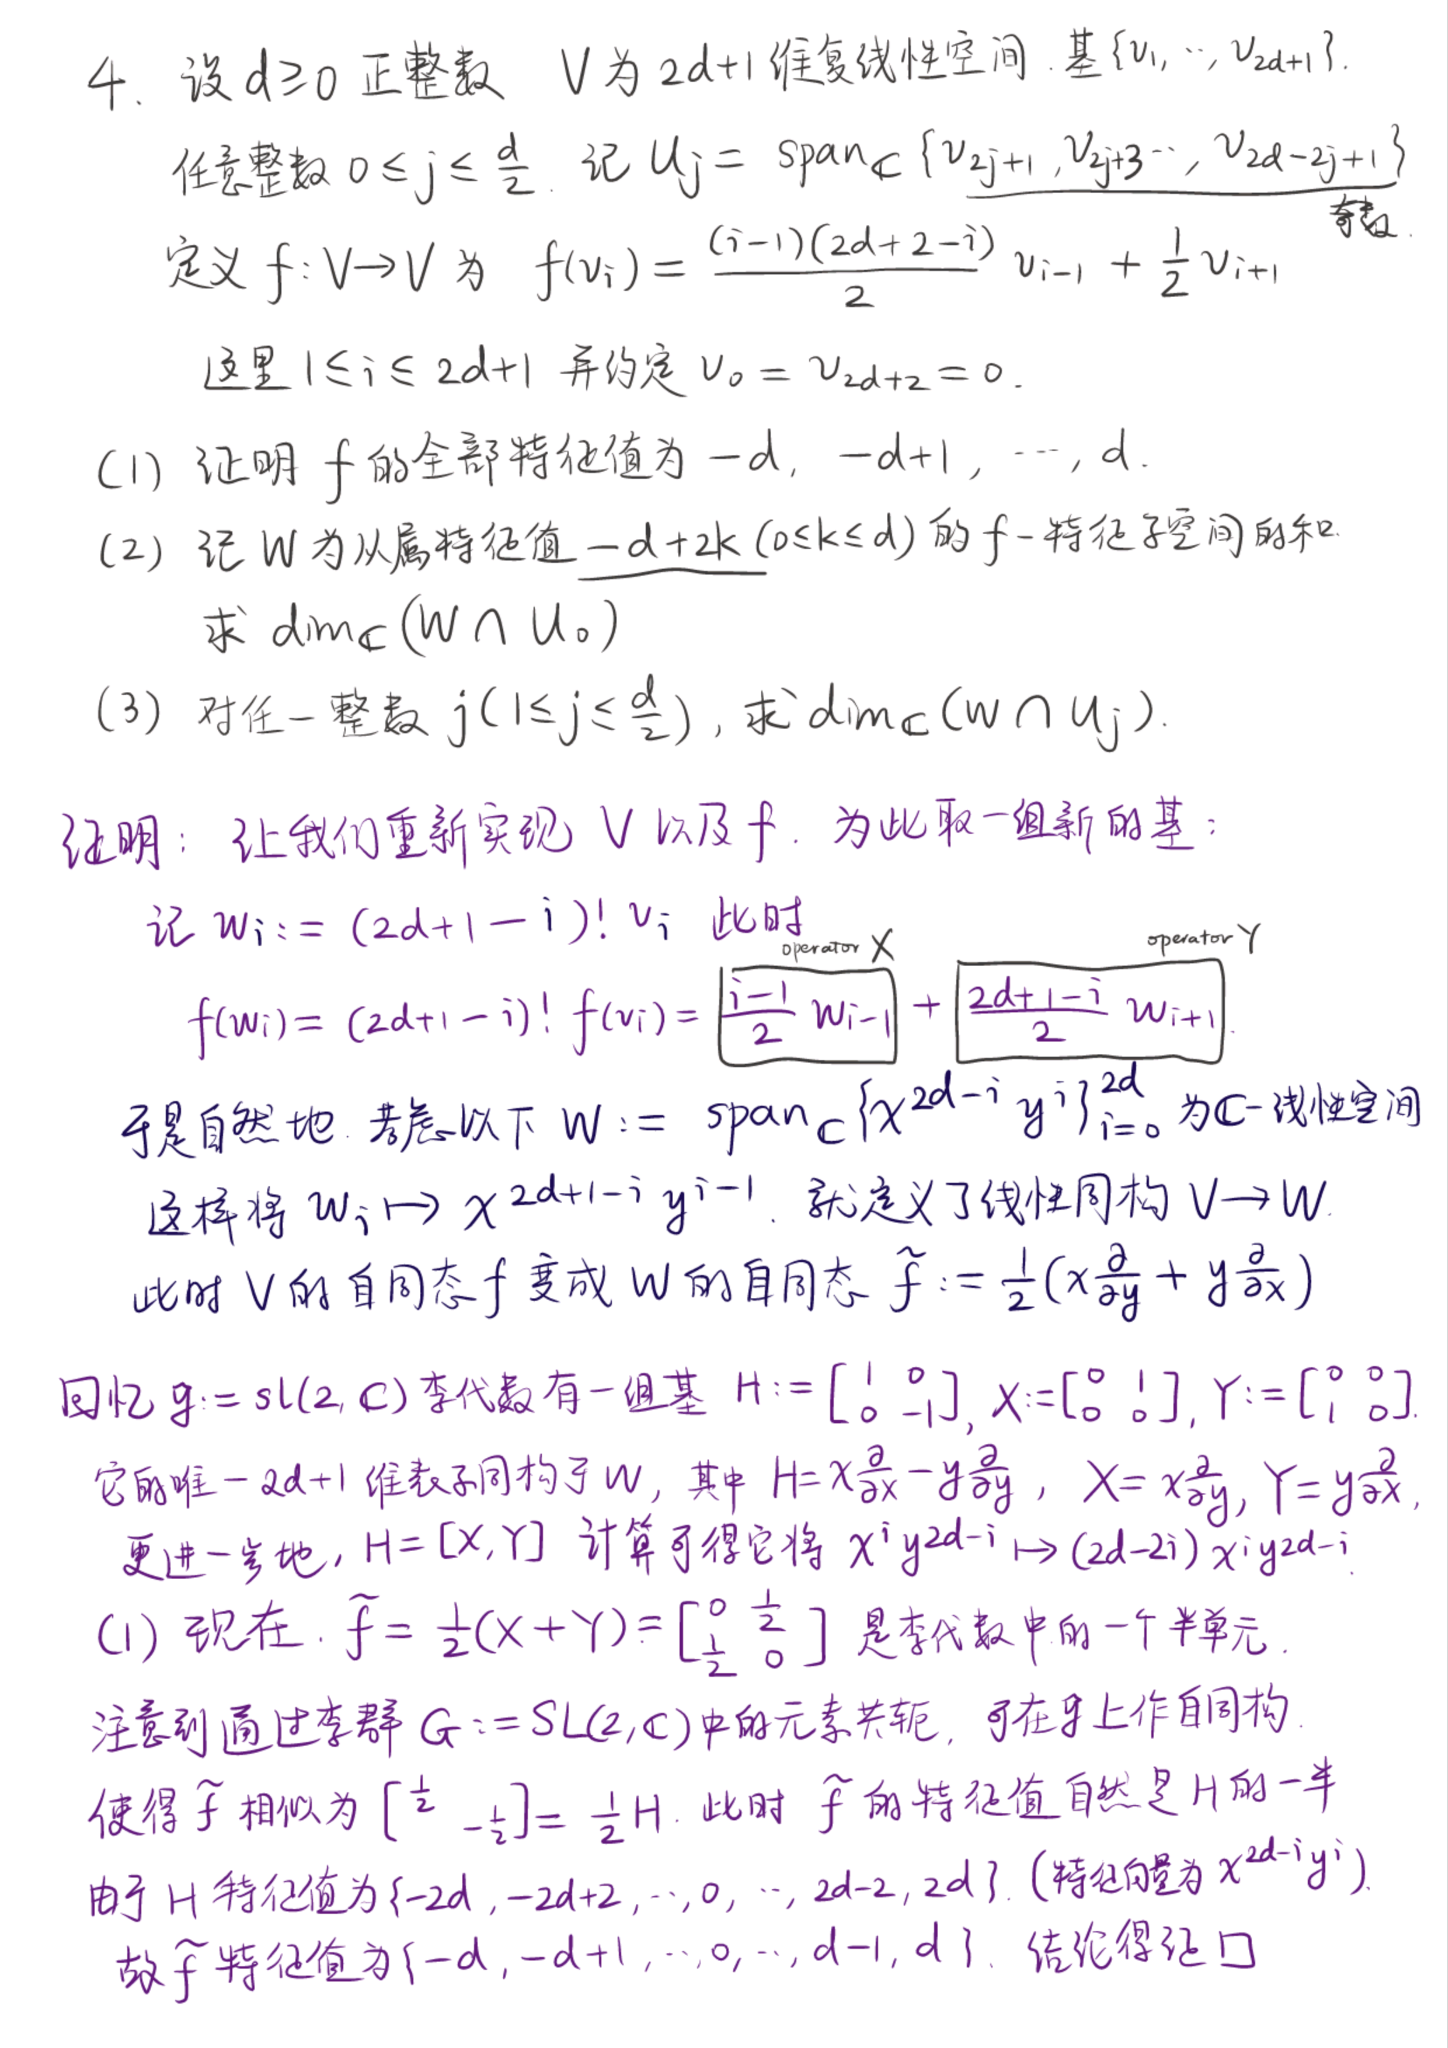 4. 设 d≥0 正整数 V 为 2d+1 维复线性空间. 基{v₁, ⋯, v_{2d+1}}.
任意整数 0 ≤ j ≤ \frac{d}{2}. 记 U_j = span_ℂ {v_{2j+1}, v_{2j+3} ⋯, v_{2d-2j+1}}
奇数.
定义 f: V→V 为 f(v_i) = \frac{(i-1)(2d+2-i)}{2} v_{i-1} + \frac{1}{2} v_{i+1}
这里 1 ≤ i ≤ 2d+1 并约定 v₀ = v_{2d+2} = 0.
(1) 证明 f 的全部特征值为 -d, -d+1, ⋯, d.
(2) 记 W 为从属特征值 -d+2k (0≤k≤d) 的 f-特征子空间的和.
求 dim_ℂ(W ∩ U₀)
(3) 对任一整数 j (1≤j≤\frac{d}{2}), 求 dim_ℂ(W ∩ U_j).
证明: 让我们重新实现 V 以及 f. 为此取一组新的基:
记 w_i := (2d+1-i)! v_i 此时
operator X operator Y
f(w_i) = (2d+1-i)! f(v_i) = \frac{i-1}{2} w_{i-1} + \frac{2d+1-i}{2} w_{i+1}.
于是自然地. 考虑以下 W := span_ℂ{x^{2d-i} y^i}_{i=0}^{2d} 为ℂ-线性空间
这样将 w_i ↦ x^{2d+1-i} y^{i-1}. 就定义了线性同构 V→W.
此时 V 的自同态 f 变成 W 的自同态 \tilde{f} := \frac{1}{2}(x\frac{∂}{∂y} + y\frac{∂}{∂x})
回忆 g := sl(2, ℂ) 李代数有一组基 H := [1 0; 0 -1], X := [0 1; 0 0], Y := [0 0; 1 0].
它的唯一 2d+1 维表示同构于 W, 其中 H = x\frac{∂}{∂x} - y\frac{∂}{∂y}, X = x\frac{∂}{∂y}, Y = y\frac{∂}{∂x},
更进一步地, H = [X, Y] 计算可得它将 x^i y^{2d-i} ↦ (2d-2i) x^i y^{2d-i}.
(1) 现在. \tilde{f} = \frac{1}{2}(X+Y) = [0 \frac{1}{2}; \frac{1}{2} 0] 是李代数中的一个半单元.
注意到通过李群 G := SL(2, ℂ) 中的元素共轭, 可在 g 上作自同构.
使得 \tilde{f} 相似为 [\frac{1}{2} ; -\frac{1}{2}] = \frac{1}{2}H. 此时 \tilde{f} 的特征值自然是 H 的一半
由于 H 特征值为 {-2d, -2d+2, ⋯, 0, ⋯, 2d-2, 2d}. (特征向量为 x^{2d-i} y^i).
故 \tilde{f} 特征值为 {-d, -d+1, ⋯, 0, ⋯, d-1, d}. 结论得证 □